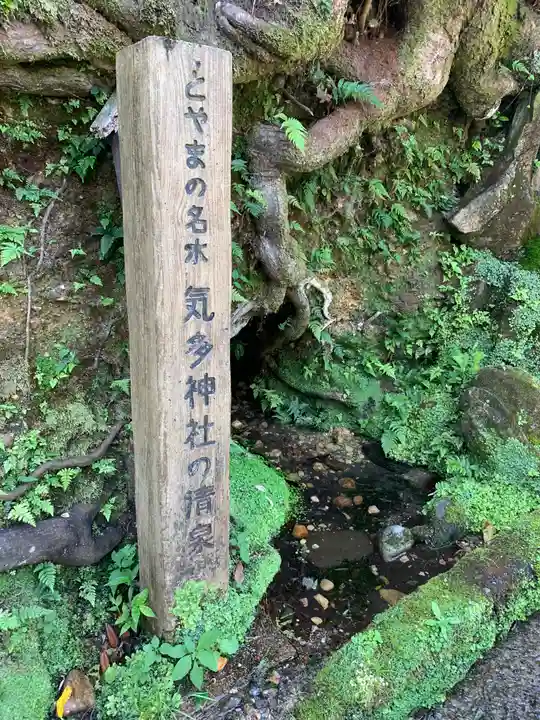 とやまの名水 気多神社の清泉